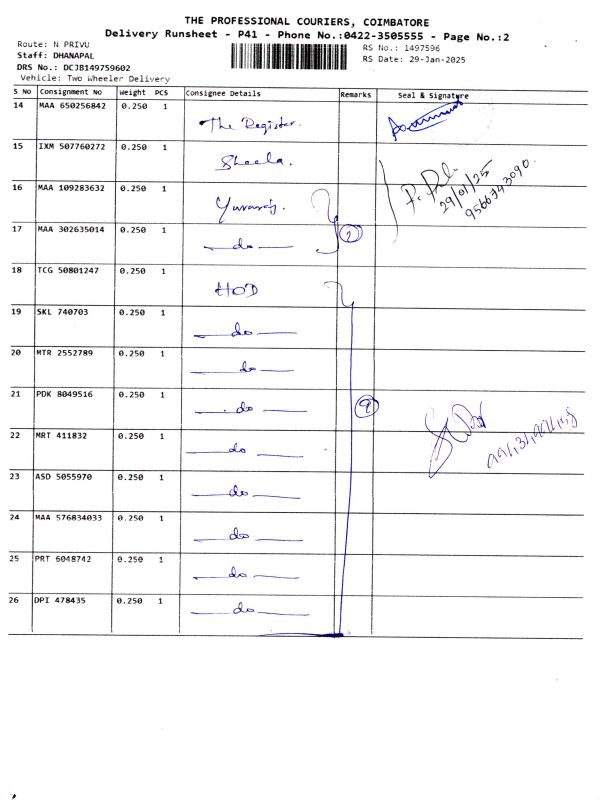 THE PROFESSIONAL COURIERS, COIMBATORE
Delivery Runsheet - P41 - Phone No.:0422-3505555 - Page No.:2
Route: N PRIVU
Staff: DHANAPAL
DRS No.: DC3B149759602
Vehicle: Two Wheeler Delivery
RS No.: 1497596
RS Date: 29-Jan-2025
S No Consignment No Weight PCS Consignee Details Remarks Seal & Signature
14 MAA 650256842 0.250 1 The Register.
15 IXM 507760272 0.250 1 Sheela.
29/01/25
9566743090.
16 MAA 109283632 0.250 1 Yuvaraj.
17 MAA 302635014 0.250 1 — do — 2
18 TCG 50801247 0.250 1 HOD
19 SKL 740703 0.250 1 — do —
20 MTR 2552789 0.250 1 — do —
21 PDK 8049516 0.250 1 — do — 9
22 MRT 411832 0.250 1 — do —
23 ASD 5055970 0.250 1 — do —
24 MAA 576834033 0.250 1 — do —
25 PRT 6048742 0.250 1 — do —
26 DPI 478435 0.250 1 — do —